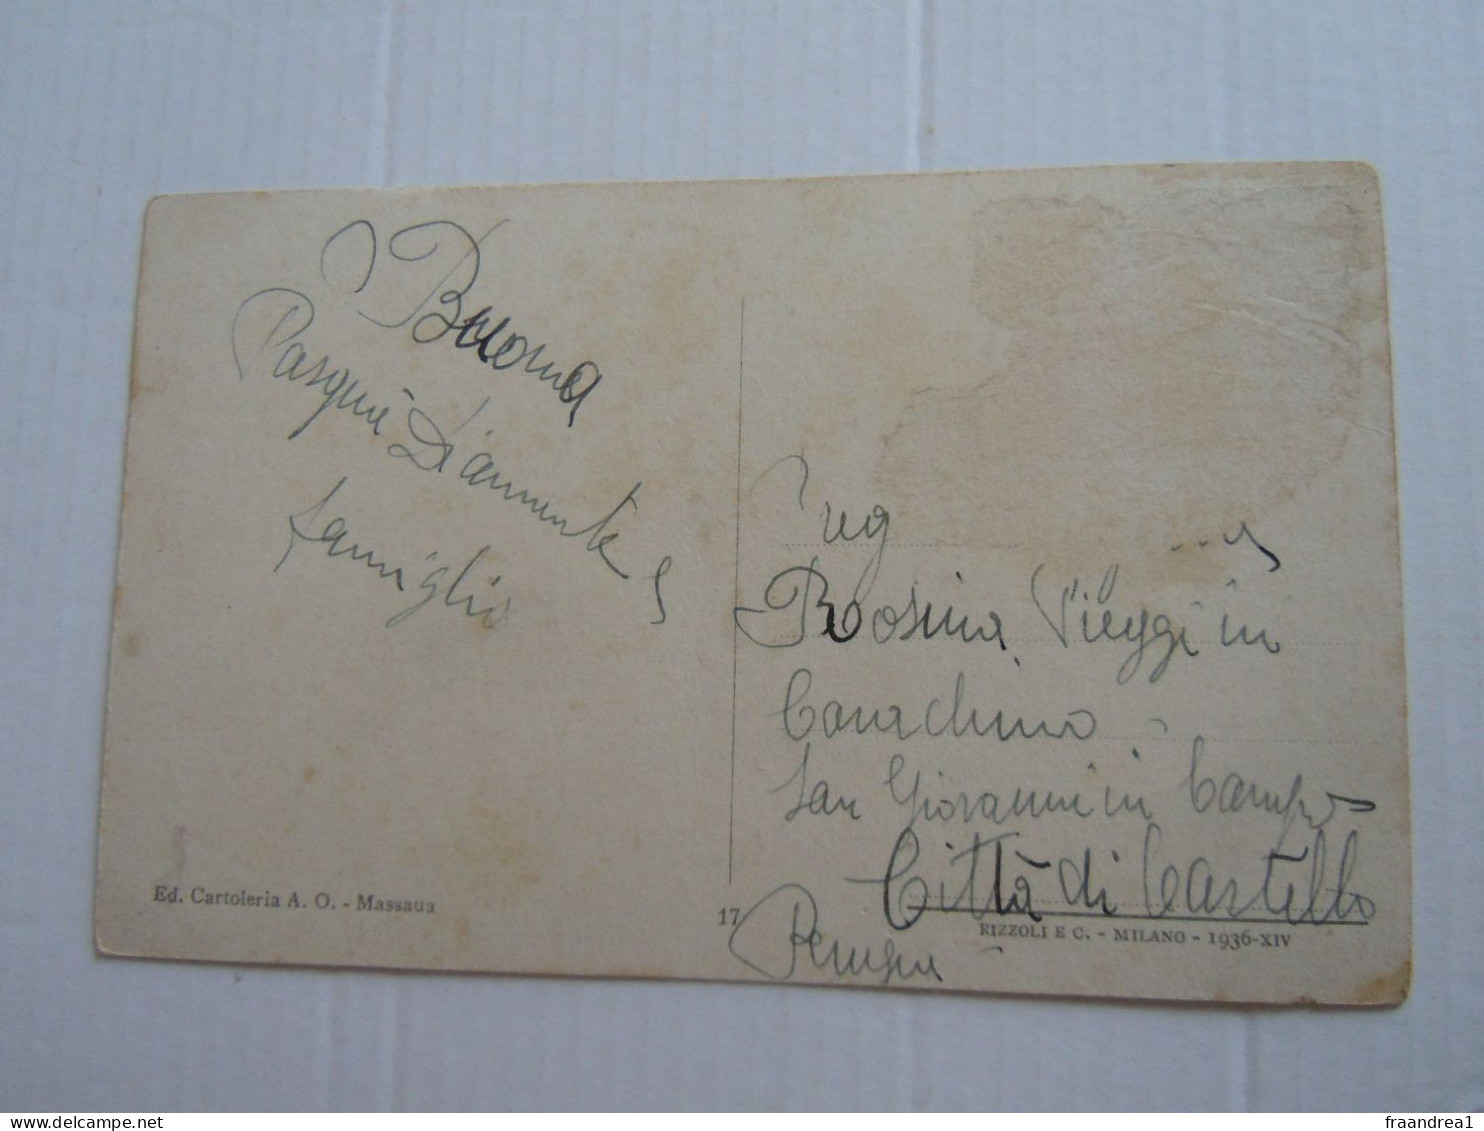 Buona
Pasqua
famiglia
Ed. Cartoleria A. O. - Massaua
17
Preg
Rosina Vieggi in
San Giovanni in Campo
Città di Castello
Perugia
RIZZOLI E C. - MILANO - 1936-XIV
www.delcampe.net
fraandrea1